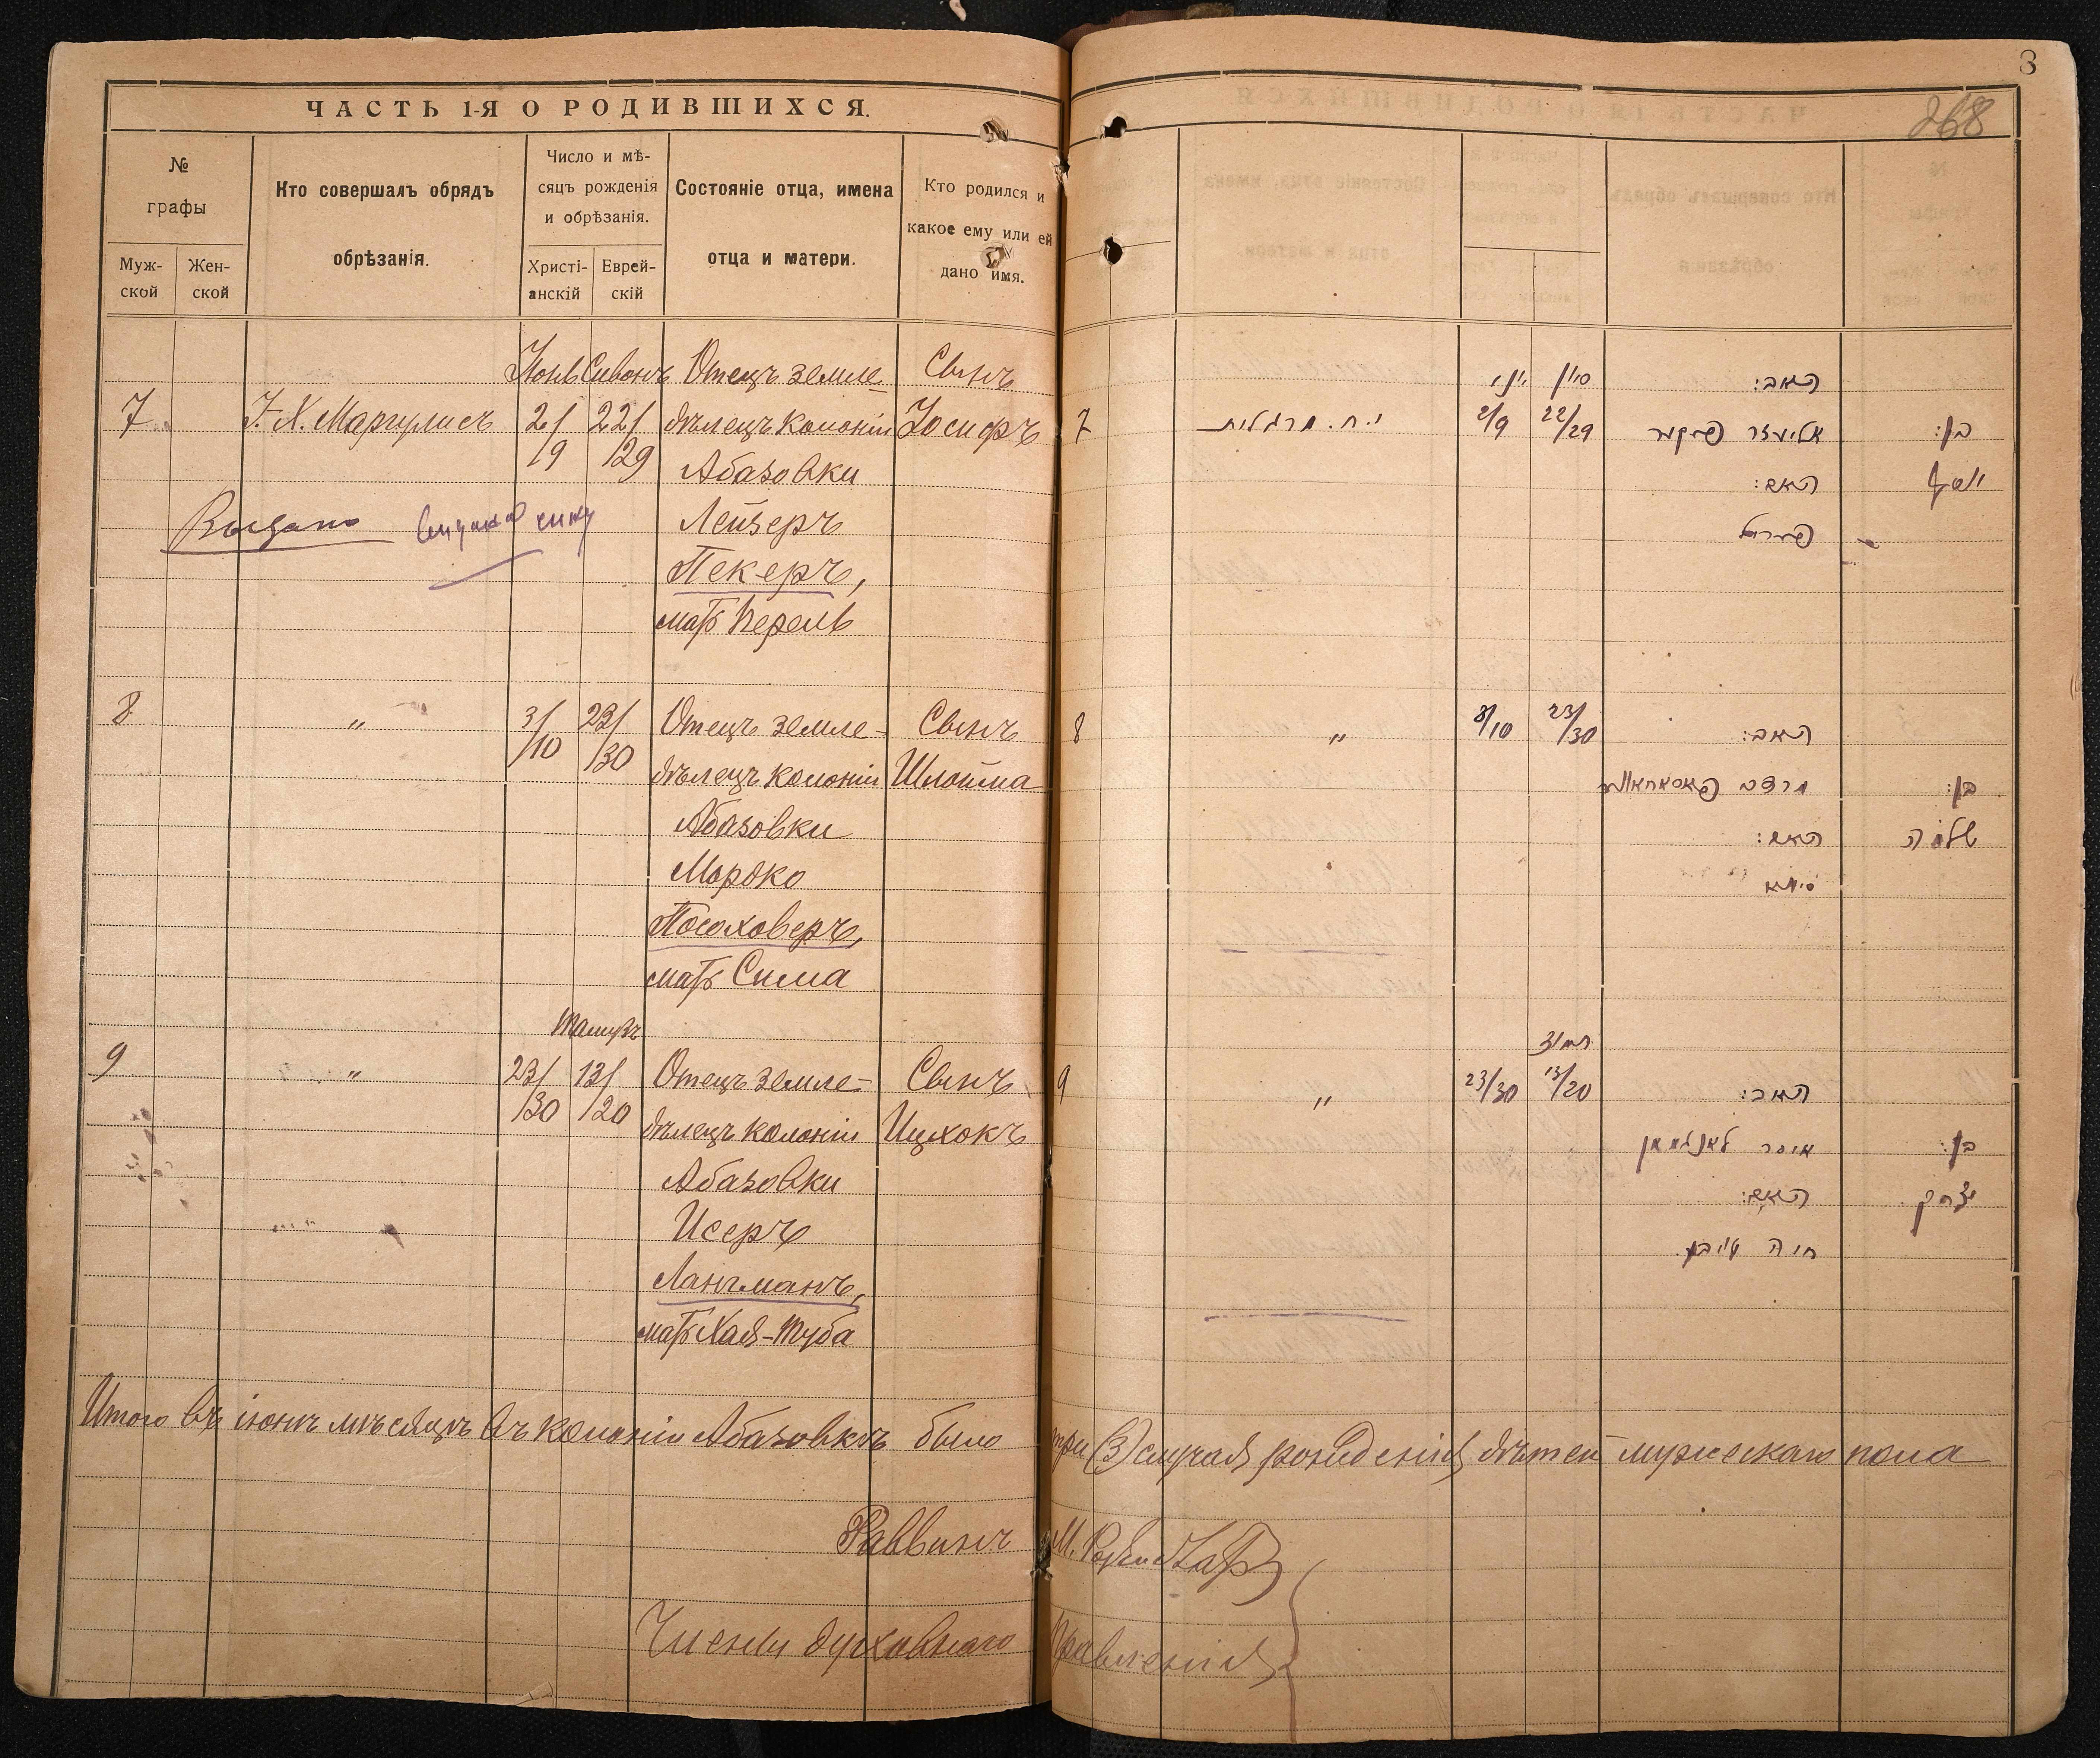 8
268
ЧАСТЬ 1-Я О РОДИВШИХСЯ.
№
графы
Муж-
ской
Жен-
ской
Кто совершалъ обрядъ
обрѣзанія.
Число и мѣ-
сяцъ рожденія
и обрѣзанія.
Христі-
анскій
Еврей-
скій
Состояніе отца, имена
отца и матери.
Кто родился и
какое ему или ей
дано имя.
Іюнь Сивонъ Отецъ земле- Сынъ
7 І. Х. Маргулисъ 2/ 22/ дѣлецъ колоніи Іосифъ
/9 /29 Абазовки
Выдано Лейзеръ
Пекеръ,
мать Перель
8 " 3/ 23/ Отецъ земле- Сынъ
/10 /30 дѣлецъ колоніи Шлойма
Абазовки
Мордко
Посоховеръ,
мать Сима
Тамузъ
9 " 23/ 13/ Отецъ земле- Сынъ
/30 /20 дѣлецъ колоніи Ицхокъ
Абазовки
Исеръ
Лангманъ,
мать Хая-Туба
סיון יוני האב:
7 י. ח. מרגליות 2/9 22/29 אליעזר פעקער בן:
האם: יוסף
פערל
8 " 3/10 23/30 האב:
מרדכי בן:
האם: שלמה
סימא
תמוז
9 " 23/30 13/20 האב:
איסר לאנגמאן בן:
האם: יצחק
חיה טובא
Итого въ іюнѣ мѣсяцѣ въ колоніи Абазовкѣ было три (3) случая рожденія дѣтей мужескаго пола
Раввинъ М.
Члены духовнаго правленія